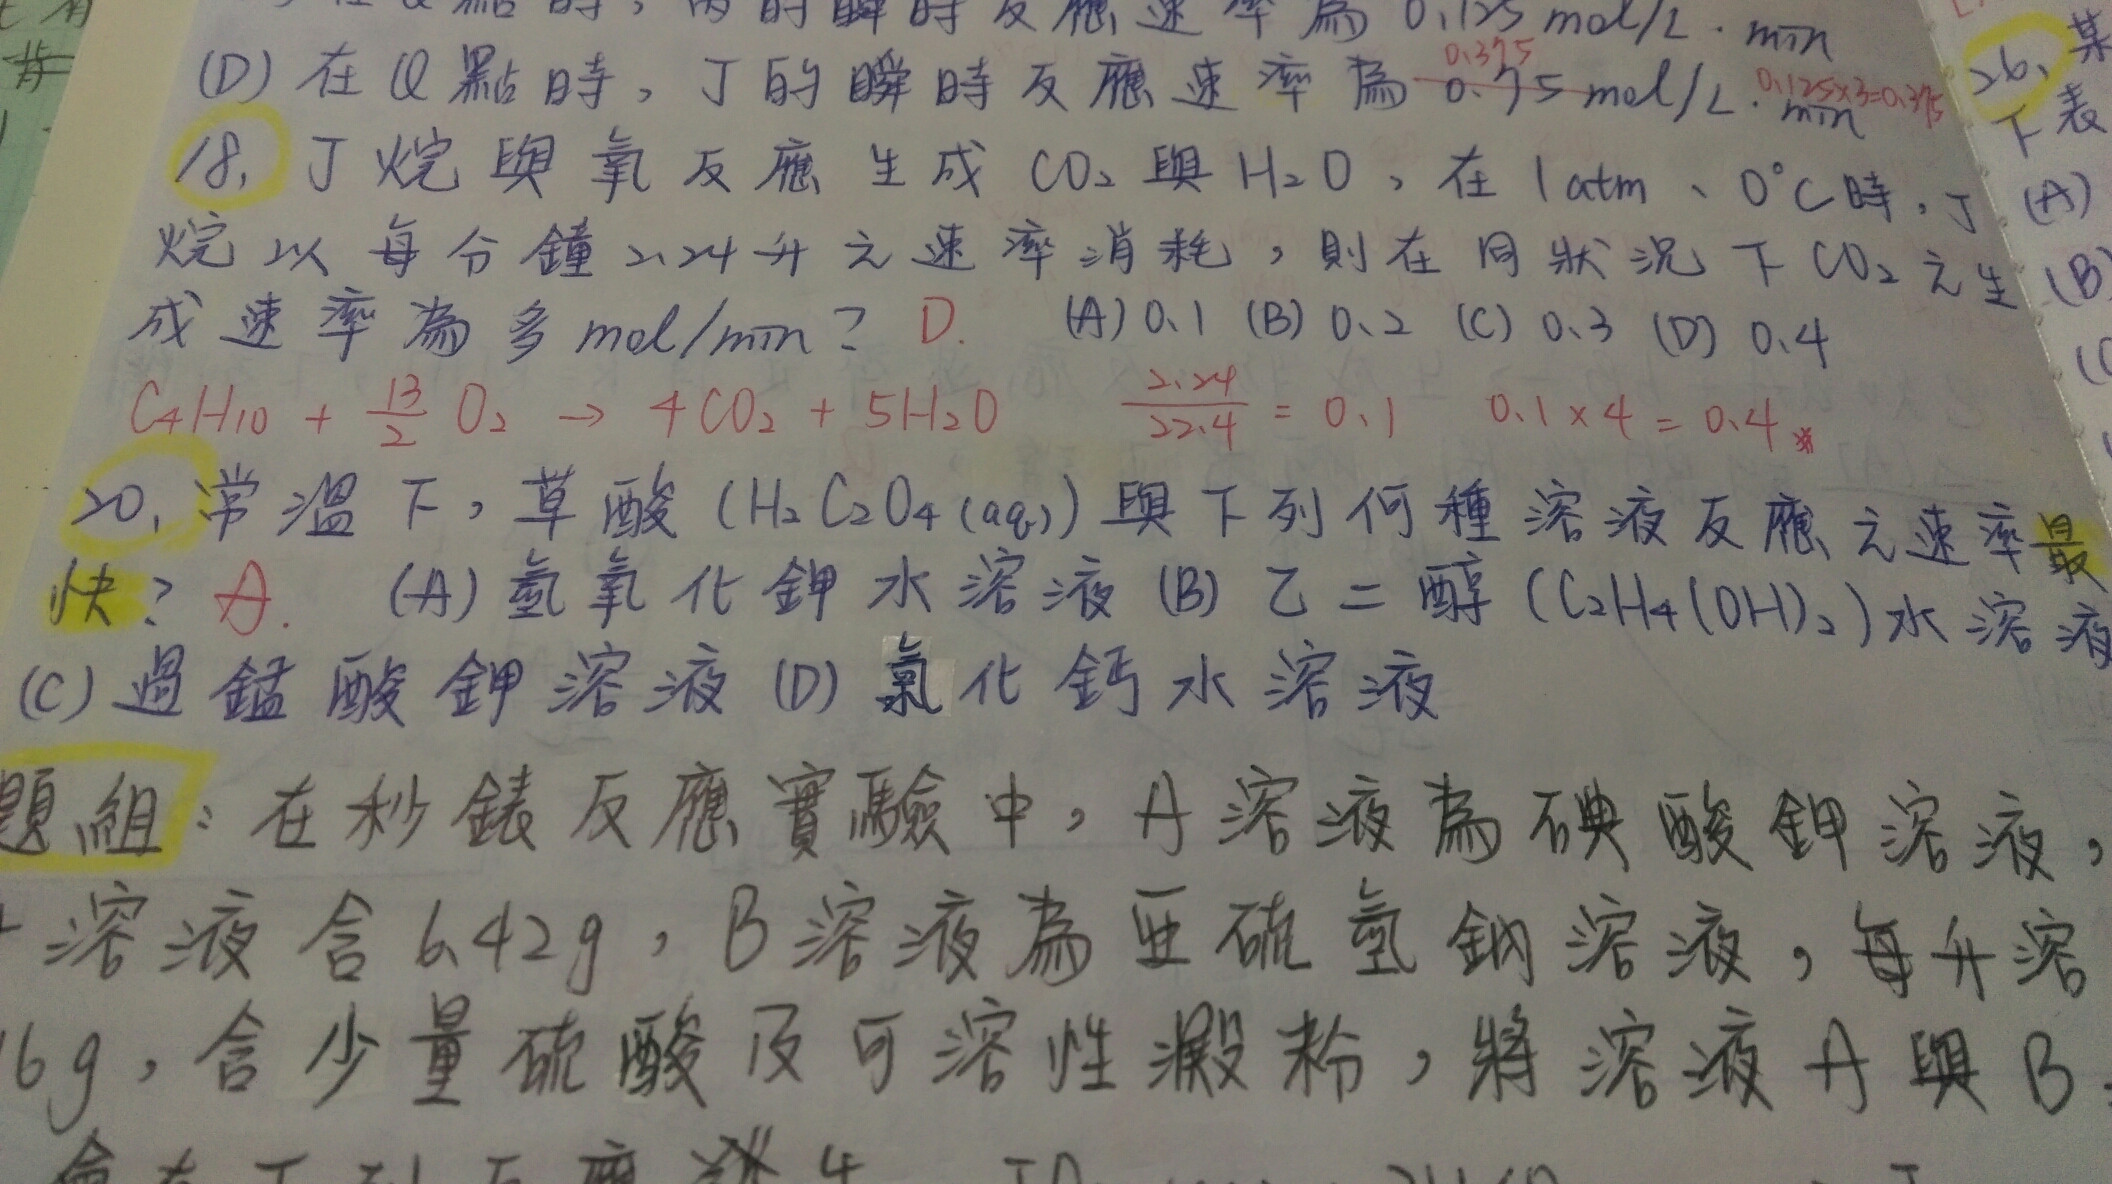 點時,丙的瞬時反應速率為0.125mol/L.min
(D)在Q點時,丁的瞬時反應速率為0.75mol/L.min
0.375
0.125×3=0.375
18,丁烷與氧反應生成CO₂與H₂O,在1atm、0°C時,丁
烷以每分鐘2.24升之速率消耗,則在同狀況下CO₂之生
成速率為多mol/min? D. (A)0.1 (B)0.2 (C)0.3 (D)0.4
C₄H₁₀ + 13/2 O₂ → 4CO₂ + 5H₂O 2.24/22.4 = 0.1 0.1×4=0.4
20,常溫下,草酸(H₂C₂O₄(aq))與下列何種溶液反應之速率最
快? A. (A)氫氧化鉀水溶液 (B)乙二醇(C₂H₄(OH)₂)水溶液
(C)過錳酸鉀溶液 (D)氯化鈣水溶液
題組:在秒錶反應實驗中,A溶液為碘酸鉀溶液,
溶液含6.42g,B溶液為亞硫氫鈉溶液,每升溶
16g,含少量硫酸及可溶性澱粉,將溶液A與B
26,某
下表
(A)
(B)